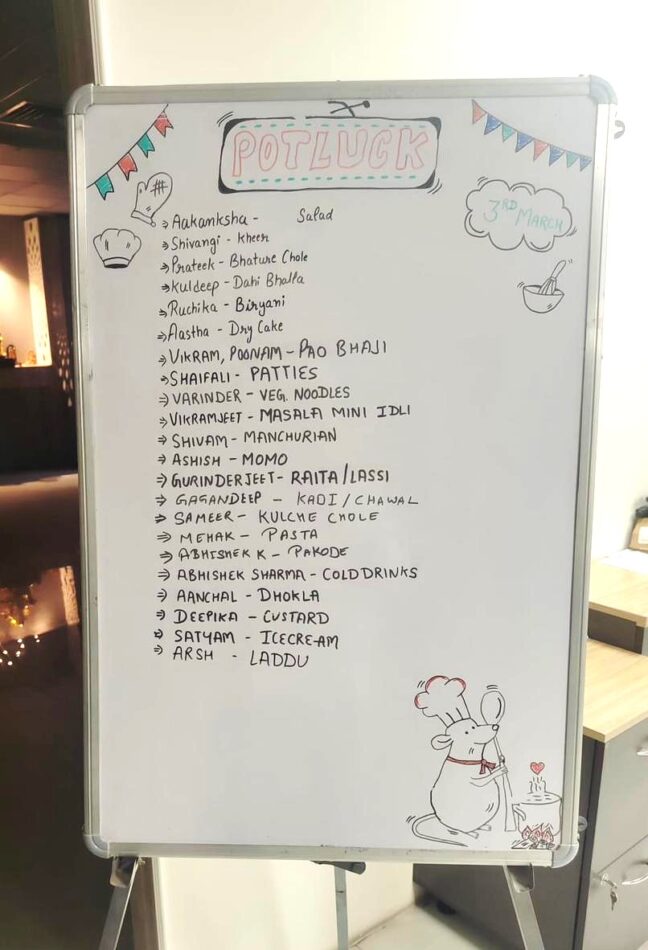 POTLUCK
3RD MARCH
⇒ Aakanksha - Salad
⇒ Shivangi - Kheer
⇒ Prateek - Bhature Chole
⇒ Kuldeep - Dahi Bhalla
⇒ Ruchika - Biryani
⇒ Aastha - Dry Cake
⇒ VIKRAM, POONAM - PAO BHAJI
⇒ SHAIFALI - PATTIES
⇒ VARINDER - VEG. NOODLES
⇒ VIKRAMJEET - MASALA MINI IDLI
⇒ SHIVAM - MANCHURIAN
⇒ ASHISH - MOMO
⇒ GURINDERJEET - RAITA/LASSI
⇒ GAGANDEEP - KADI/CHAWAL
⇒ SAMEER - KULCHE CHOLE
⇒ MEHAK - PASTA
⇒ ABHISHEK K - PAKODE
⇒ ABHISHEK SHARMA - COLD DRINKS
⇒ AANCHAL - DHOKLA
⇒ DEEPIKA - CUSTARD
⇒ SATYAM - ICECREAM
⇒ ARSH - LADDU